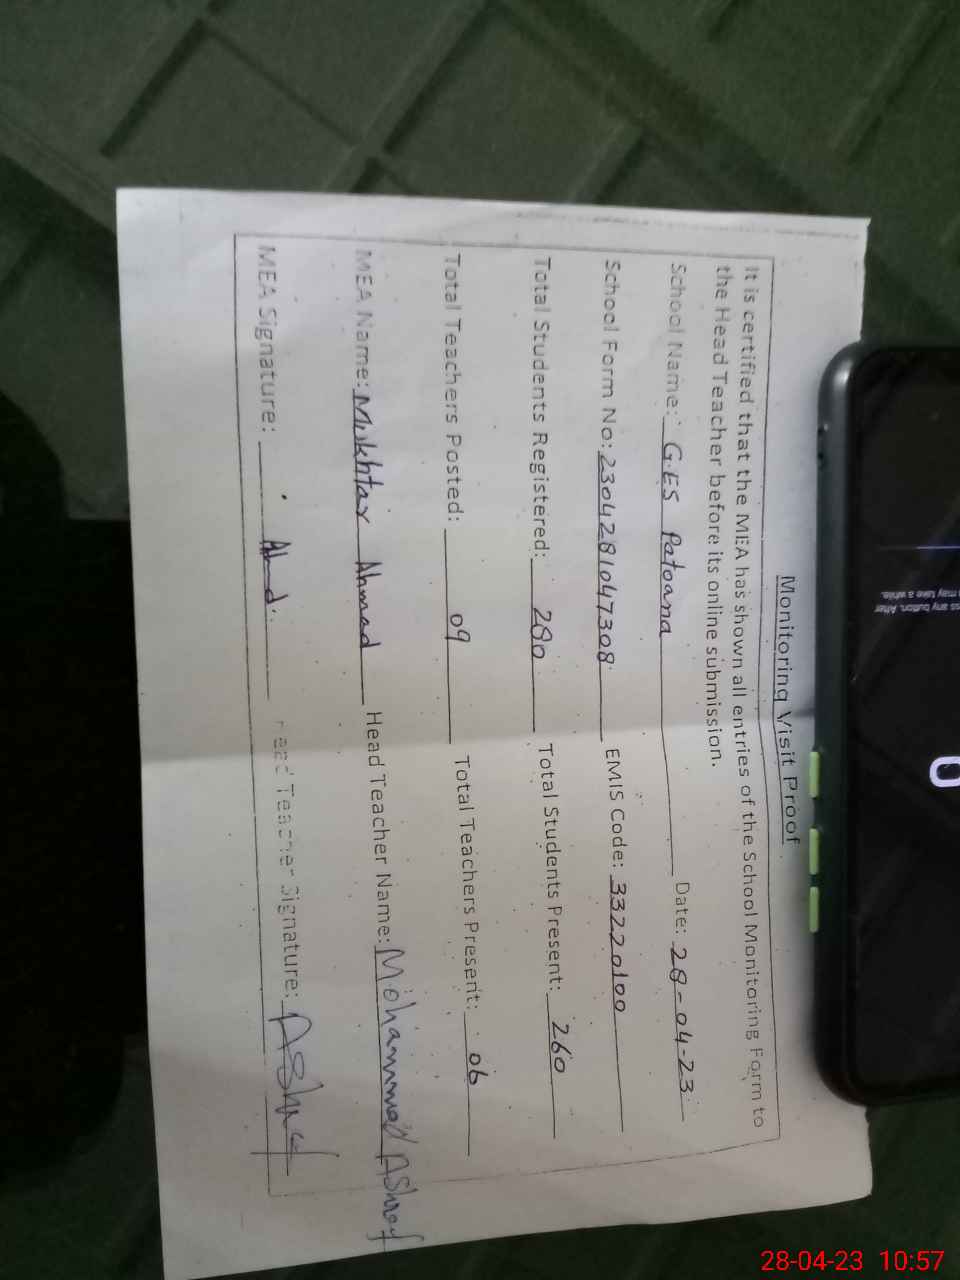 Monitoring Visit Proof
It is certified that the MEA has shown all entries of the School Monitoring Form to
the Head Teacher before its online submission.
School Name: G.ES Patoana Date: 28-04-23
School Form No: 2304281047308 EMIS Code: 33220100
Total Students Registered: 280 Total Students Present: 260
Total Teachers Posted: 09 Total Teachers Present: 06
MEA Name: Mukhtar Ahmad Head Teacher Name: Mohammed AShraf
MEA Signature: Ahmad Head Teacher Signature: AShraf
ss any button. After
may take a while.
0
28-04-23 10:57